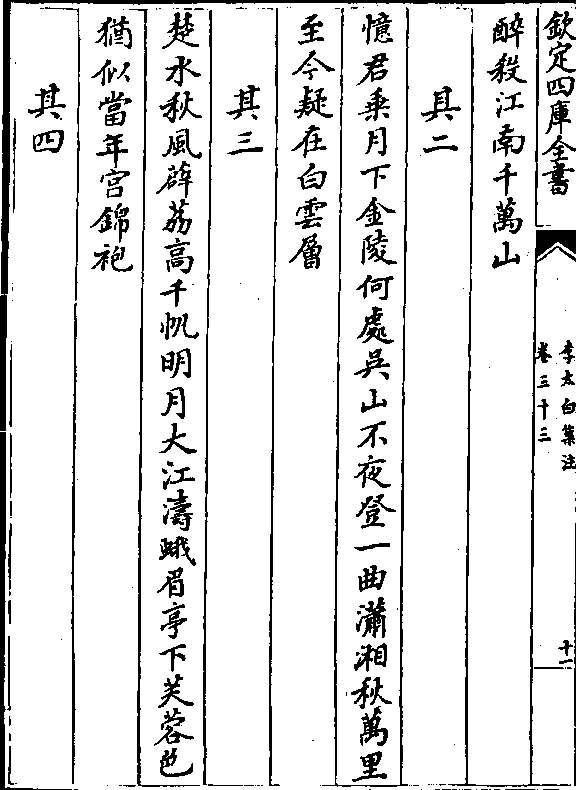 欽定四庫全書
李太白集注
卷三十三
十一
醉殺江南千萬山
其二
憶君乘月下金陵何處吳山不夜登一曲瀟湘秋萬里
至今疑在白雲層
其三
楚水秋風薜荔高千帆明月大江濤蛾眉亭下芙蓉色
猶似當年宮錦袍
其四